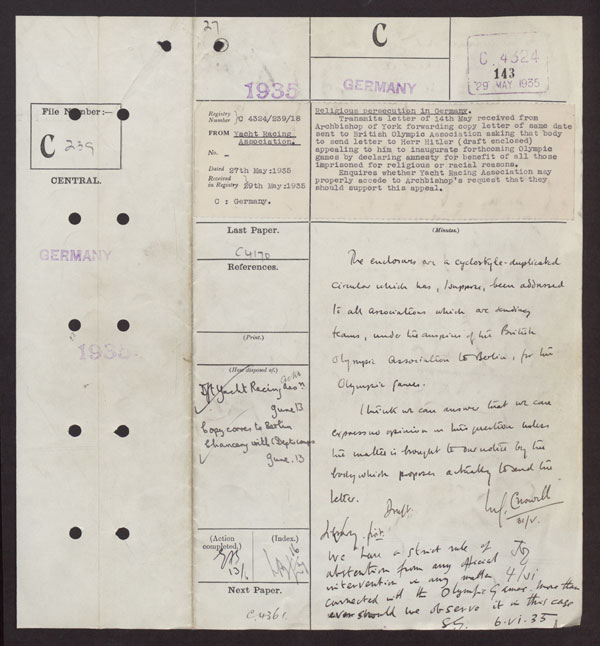 27
C
C 4324
143
29 MAY 1935
1935
GERMANY
File Number:—
C 239
CENTRAL.
GERMANY
1935
Registry Number } C 4324/239/18
FROM Yacht Racing
Association.
No. -
Dated 27th May:1935
Received
in Registry } 29th May:1935
C : Germany.
Religious persecution in Germany.
Transmits letter of 14th May received from
Archbishop of York forwarding copy letter of same date
sent to British Olympic Association asking that body
to send letter to Herr Hitler (draft enclosed)
appealing to him to inaugurate forthcoming Olympic
games by declaring amnesty for benefit of all those
imprisoned for religious or racial reasons.
Enquires whether Yacht Racing Association may
properly accede to Archbishop's request that they
should support this appeal.
Last Paper.
C4170
References.
(Print.)
(How disposed of.)
Yacht Racing Asson
June 13
Copy corres to Berlin
Chancery with
June. 13
(Action
completed.)
13/6
(Index.)
Next Paper.
C.4361
(Minutes.)
The enclosures are a cyclostyle-duplicated
circular which has, I suppose, been addressed
to all associations which are sending
teams, under the auspices of the British
Olympic Association to Berlin, for the
Olympic games.
I think we can answer that we can
express no opinion on this question unless
the matter is brought to our notice by the
body which proposes actually to send the
letter.
Draft.
We have a strict rule of
abstention from any official
intervention in any matter
connected with the Olympic Games. More than
ever should we observe it in this case
4/vi
6.vi.35